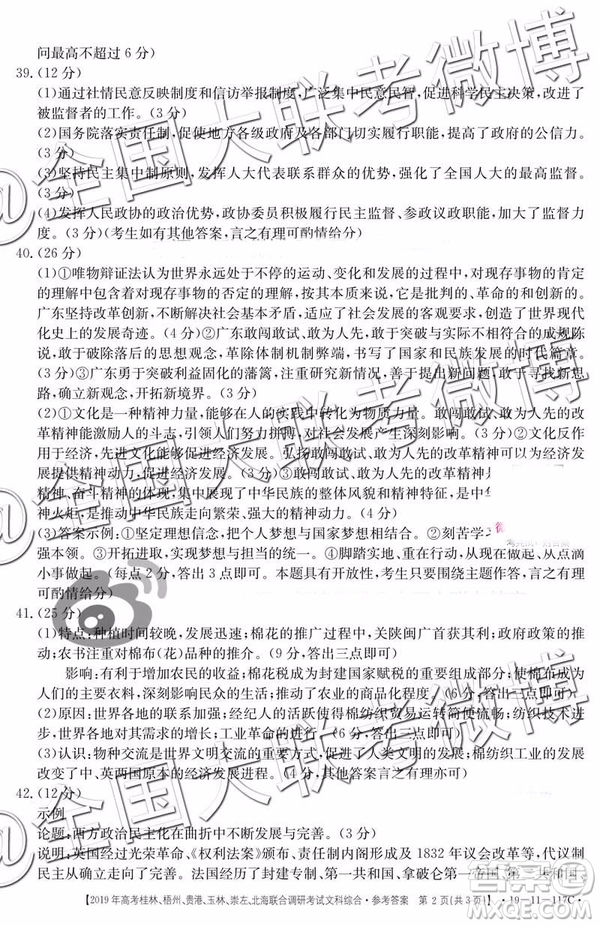 问最高不超过 6 分)
39. (12 分)
(1)通过社情民意反映制度和信访举报制度,广泛集中民意民智,促进科学民主决策,改进了
被监督者的工作。(3 分)
(2)国务院落实责任制,促使地方各级政府及各部门切实履行职能,提高了政府的公信力。
(3 分)
(3)坚持民主集中制原则,发挥人大代表联系群众的优势,强化了全国人大的最高权威。
(3 分)
(4)发挥人民政协的政治优势,政协委员积极履行民主监督、参政议政职能,有利于推动制度
度。(3 分)(考生如有其他答案,言之有理可酌情给分)
40. (26 分)
(1)①唯物辩证法认为世界永远处于不停的运动、变化和发展的过程中,对现存事物的肯定
的理解中包含着对现存事物的否定的理解,它是批判的、革命的和创新的。
广东坚持改革创新,不断解决社会基本矛盾,适应了社会发展的客观要求,创造了世界现代
化史上的发展奇迹。(4 分)②广东敢闯敢试、敢为人先,不唯本本、不守现存的成规陈
说,敢于破除落后的思想观念,革除体制机制弊端,书写了国家和民族发展的壮丽篇章。
(3 分)③广东勇于突破利益固化的藩篱,注重研究新情况,善于提出新问题,敢于寻找新思
路,确立新观念,开拓新境界。(3 分)
(2)①文化是一种精神力量,能够在人的实践中转化为物质力量。敢闯敢试、敢为人先的改
革精神能激励人的斗志,引领人们努力拼搏,对改革事业产生深刻影响。(3 分)②文化反作
用于经济,先进文化能够促进经济发展。弘扬敢闯敢试、敢为人先的改革精神可以为经济发
展提供精神动力。(3 分)③敢闯敢试、敢为人先的改革精神是
精神、奋斗精神的体现,集中展现了中华民族的整体风貌和精神特征,是中
神火炬,是中华民族走向繁荣、强大的精神动力。(4 分)
(3)答案示例:①坚定理想信念,把个人梦想与国家梦想相结合。②刻苦学
强本领。③开拓创新,实现梦想与现实的统一。④脚踏实地,重视量的积累,从点滴
小事做起。(每点 2 分,答出 3 点即可。本题具有开放性,考生只要围绕主题作答,言之有理
可酌情给分)
41. (25 分)
(1)特点:种植时间较晚,发展迅速;棉花的推广过程中,关陕闽广首获其利;政府政策的推
动;农书注重对棉布(花)品种的推介。(9 分,答出三点即可)
影响:有利于增加农民的收益;棉花税成为封建国家赋税的重要组成部分;使棉布成为
人们的主要衣料,深刻影响民众的生活;推动了农业的商品化程度。(6 分,答出三点即可)
(2)原因:世界各地的联系加强;经纪人的活跃使得棉纺织贸易运转有效;印棉布符合世界
各地对其需求的增长;工业革命的进行。(6 分,答出三点即可)
(3)认识:物种交流是世界文明交流的重要内容,促进了世界文明的发展;棉纺织工业的发展
改变了中、英两国原本的经济发展进程。(4 分,言之有理亦可)
42. (12 分)
示例
论题:西方政治民主化在曲折中不断发展与完善。(3 分)
说明:英国经过光荣革命、《权利法案》颁布、责任制内阁形成及 1832 年议会改革等,代议
制民主不断发展与完善。法国经历封建专制、第一共和国、拿破仑第一帝国、第二共和国、
【2019 年高考桂林、梧州、贵港、玉林、崇左、北海联合调研考试文科综合·参考答案 第 2 页(共 3 页)】 ·19-11-117C·
@全国大联考微博
@全国大联考微博
@全国大联考微博